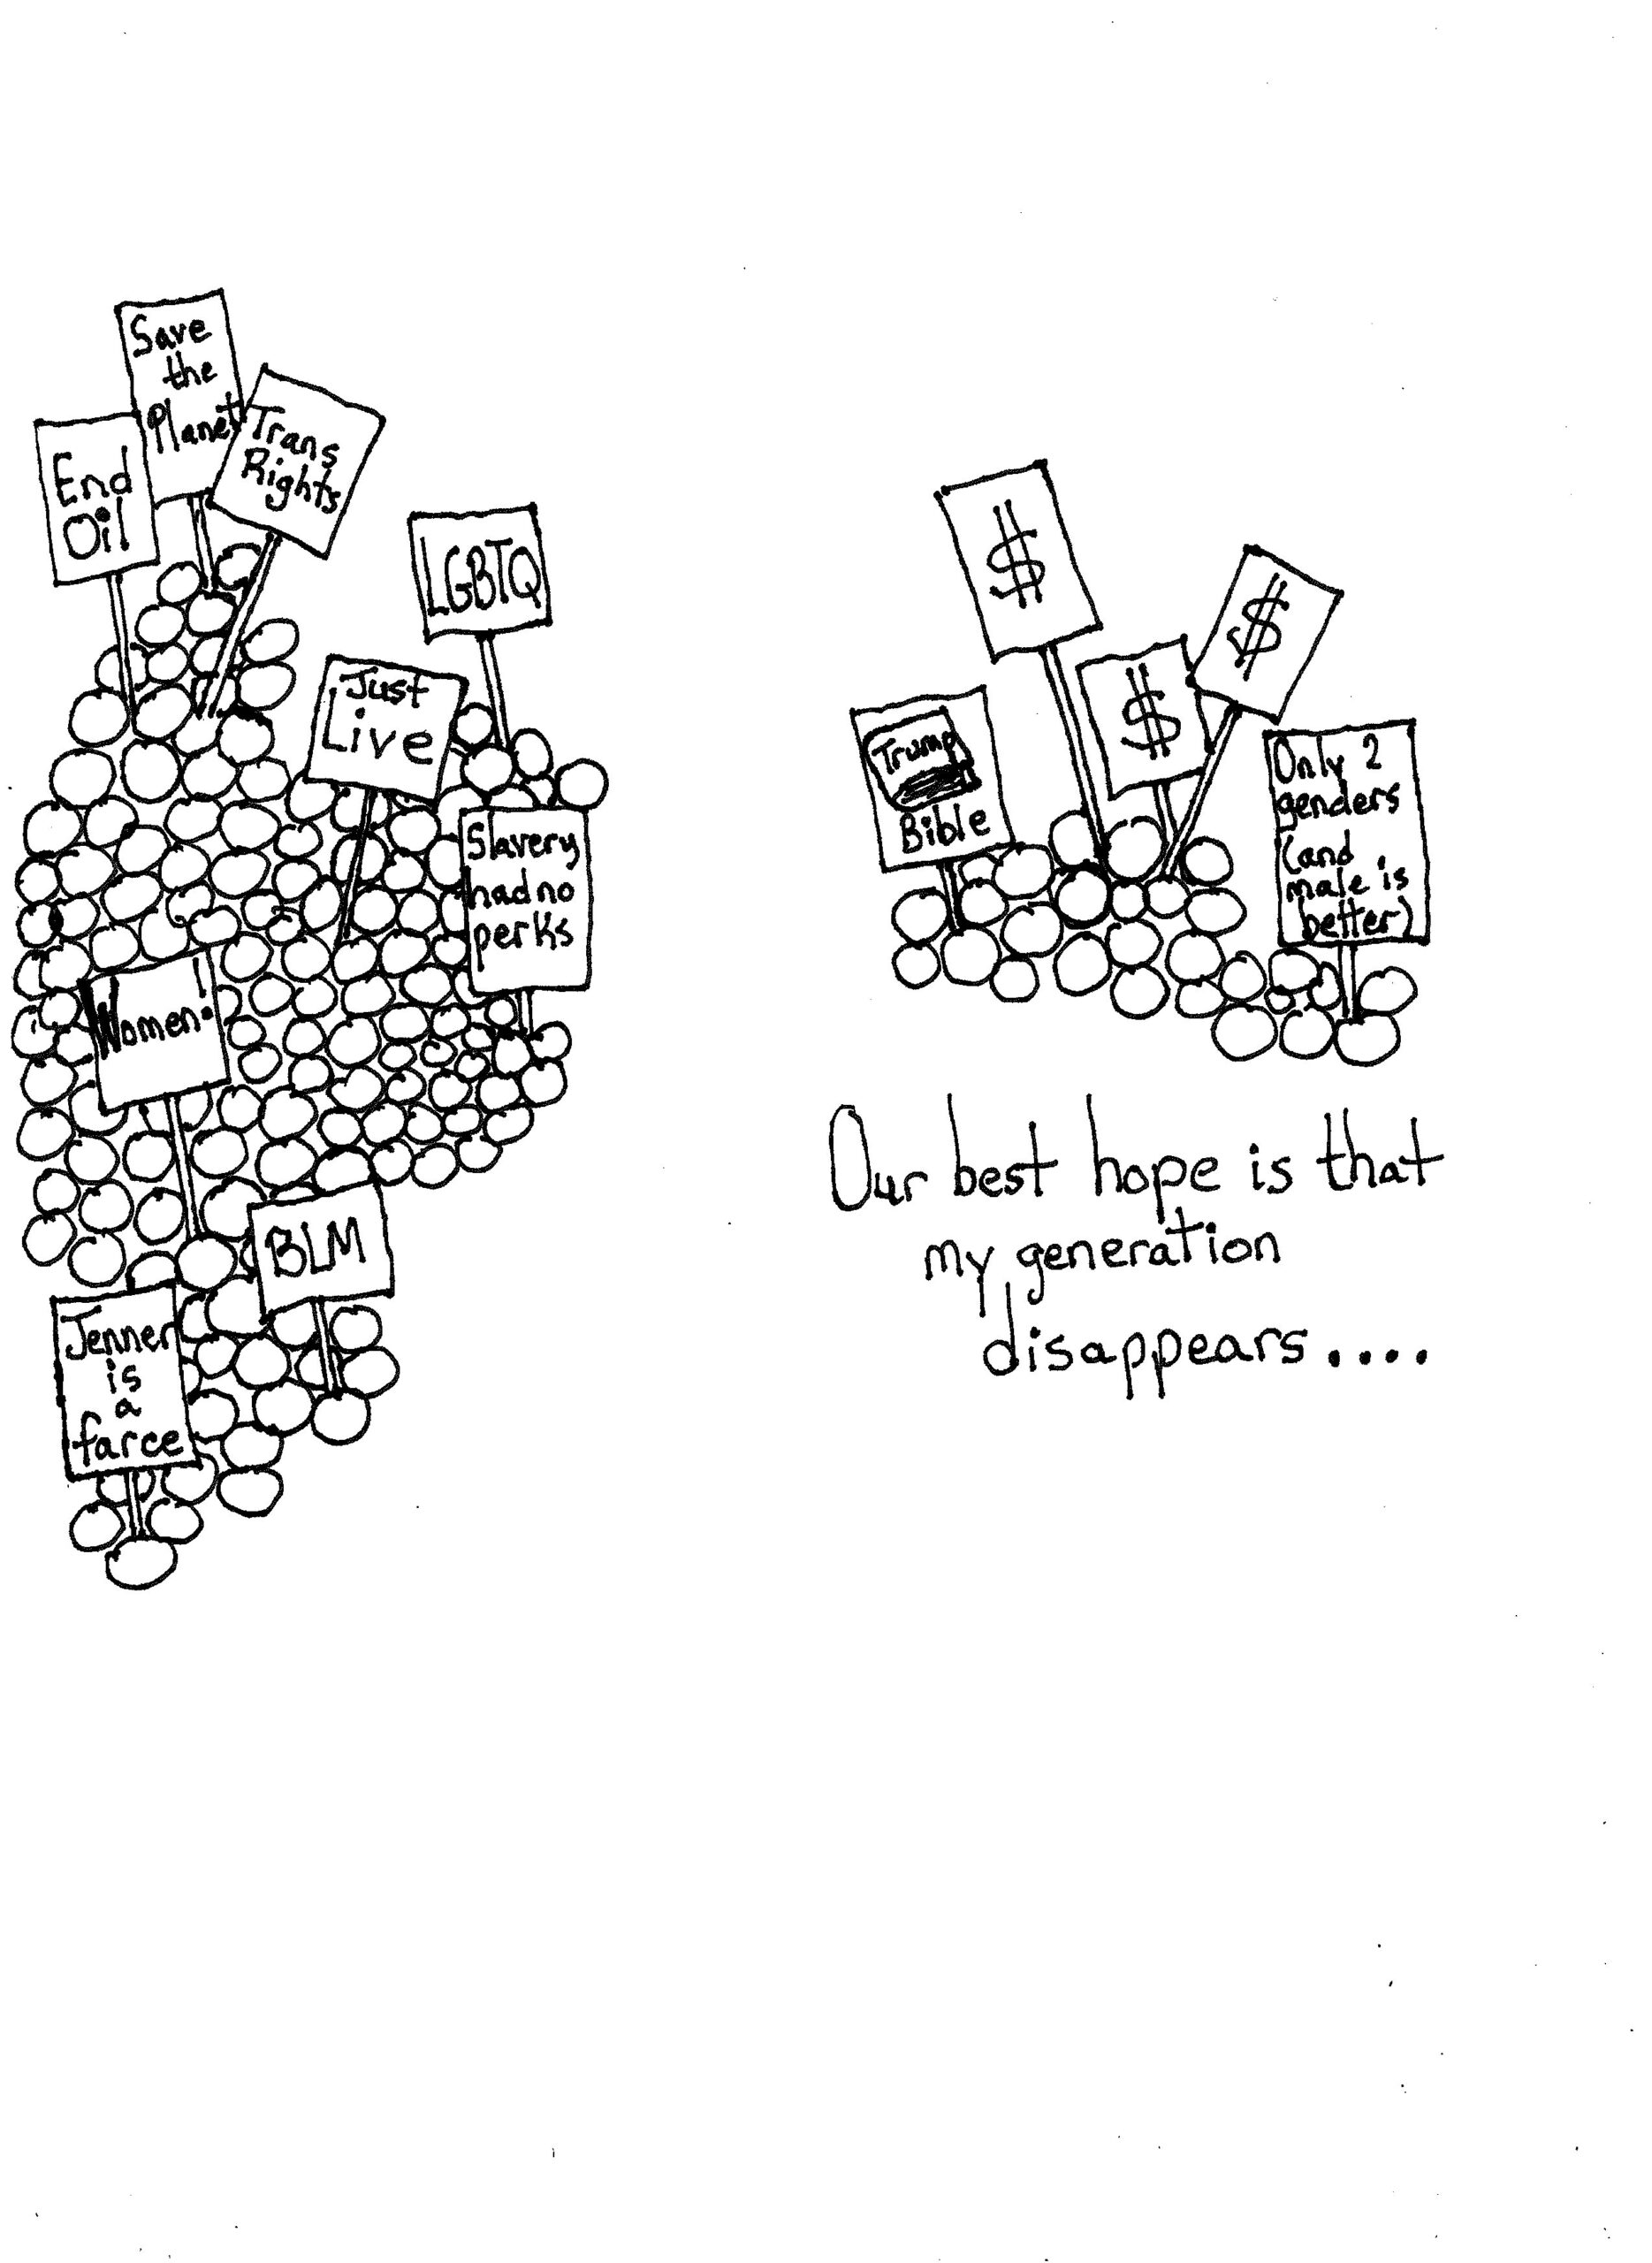 Save
the
Planet
End
Oil
Trans
Rights
LGBTQ
Just
Live
Slavery
had no
perks
Women!
BLM
Jenner
is
a
farce
$
$
$
Trump
Bible
Only 2
genders
(and
male is
better)
Our best hope is that
my generation
disappears....